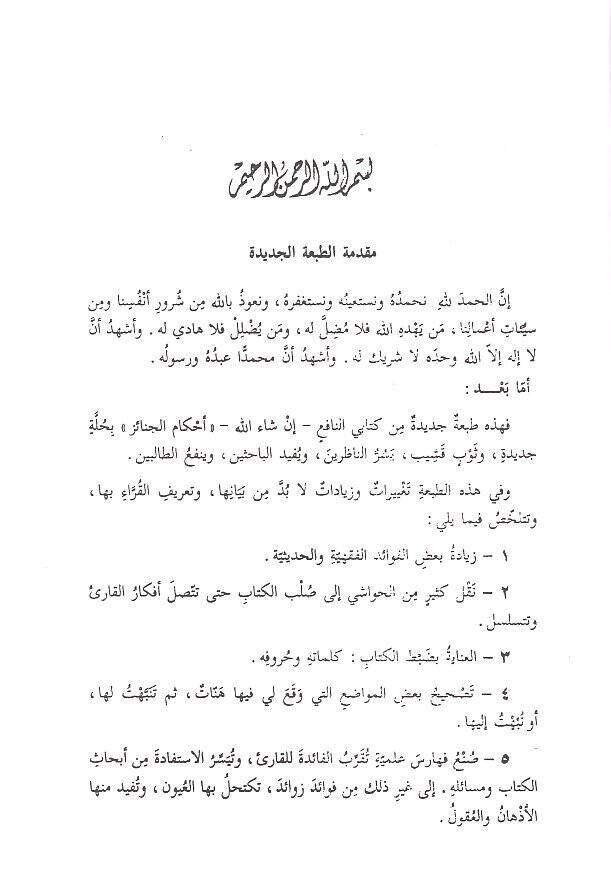 بسم الله الرحمن الرحيم
مقدمة الطبعة الجديدة
إنَّ الحمدَ للهِ نحمدُهُ ونستعينُه ونستغفرهُ، ونعوذُ بالله مِن شُرورِ أنْفُسِنا ومِن
سيِّئاتِ أعْمالِنا، مَن يَهْدِهِ اللهُ فلا مُضِلَّ له، ومَن يُضْلِلْ فلا هادي له. وأشهدُ أنَّ
لا إله إلاّ الله وحدَه لا شريك له. وأشهدُ أنَّ محمدًا عبدُهُ ورسولُه.
أمّا بَعْــد:
فهذه طبعةٌ جديدةٌ مِن كتابي النافعِ – إنْ شاء الله – «أحْكام الجنائز» بِحُلَّةٍ
جديدةٍ، وثَوْبٍ قَشِيب، يَسُرُّ الناظرينَ، ويُفيد الباحثين، وينفعُ الطالبين.
وفي هذه الطبعةِ تَغْييراتٌ وزياداتٌ لا بُدَّ مِن بَيَانِها، وتعريفِ القُرَّاءِ بها،
وتتلخّصُ فيما يلي:
١ – زيادةُ بعضِ الفوائد الفقهيّةِ والحديثيّة.
٢ – نَقْل كثيرٍ مِن الحواشي إلى صُلْب الكتابِ حتى تتّصلَ أفكارُ القارئ
وتتسلسل.
٣ – العنايةُ بضَبْط الكتابِ: كلماتهِ وحُروفِه.
٤ – تَصْحيحُ بعضِ المواضعِ التي وَقَعَ لي فيها هَنَاتٌ، ثم تَنَبَّهْتُ لها،
أو نُبِّهْتُ إليها.
٥ – صُنْعُ فهارسَ علميّةٍ تُقَرِّبُ الفائدةَ للقارئ، وتُيَسِّرُ الاستفادةَ مِن أبحاثِ
الكتاب ومسائلهِ. إلى غيرِ ذلك مِن فوائدَ زوائدَ، تكتحلُ بها العُيون، وتُفيد منها
الأذْهانُ والعُقولُ.